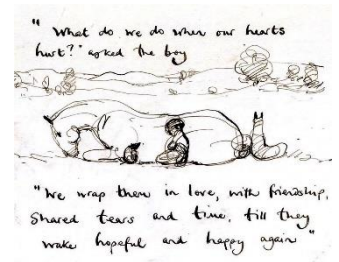 "What do we do when our hearts
hurt?" asked the boy
"We wrap them in love, with friendship,
Shared tears and time, till they
wake hopeful and happy again"